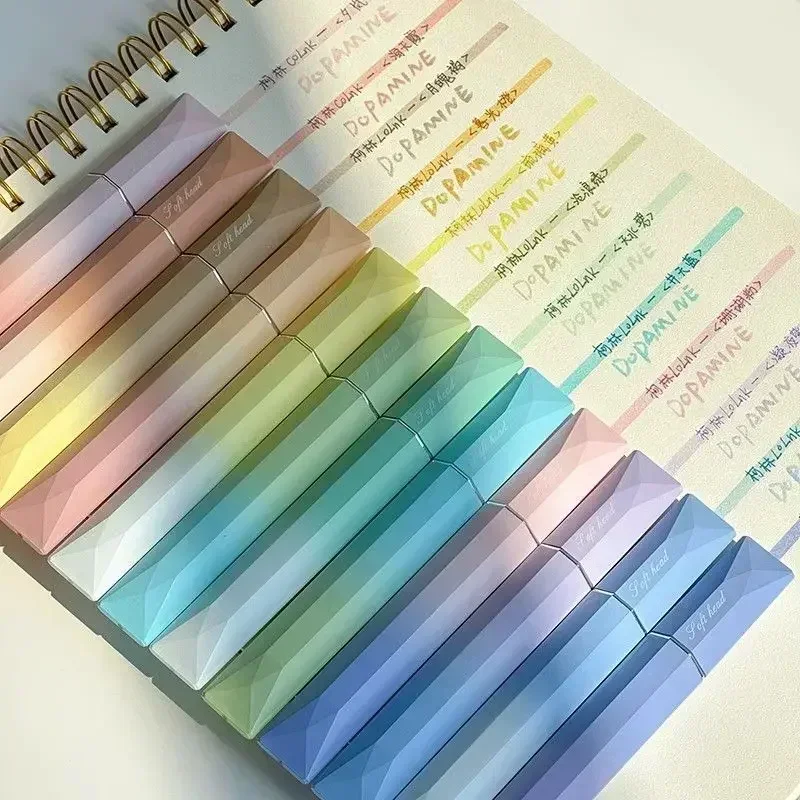 柯林Colnk一<夕
DOPAMINE
柯林Colnk一
DOPAMINE
柯林Colnk一<月魄褐>
DOPAMINE
柯林Colnk一<春光橙>
DOPAMINE
柯林Colnk一
DOPAMINE
柯林Colnk一
DOPAMINE
柯林Colnk一
DOPAMINE
柯林Colnk一<井天蓝>
DOPAMINE
柯林Colnk一<珊瑚粉>
DOPAMINE
柯林Colnk一<凝夜
DOPAMINE
柯林Colnk
Soft head
Soft head
Soft head
Soft head
Soft head
Soft head
Soft head
Soft head